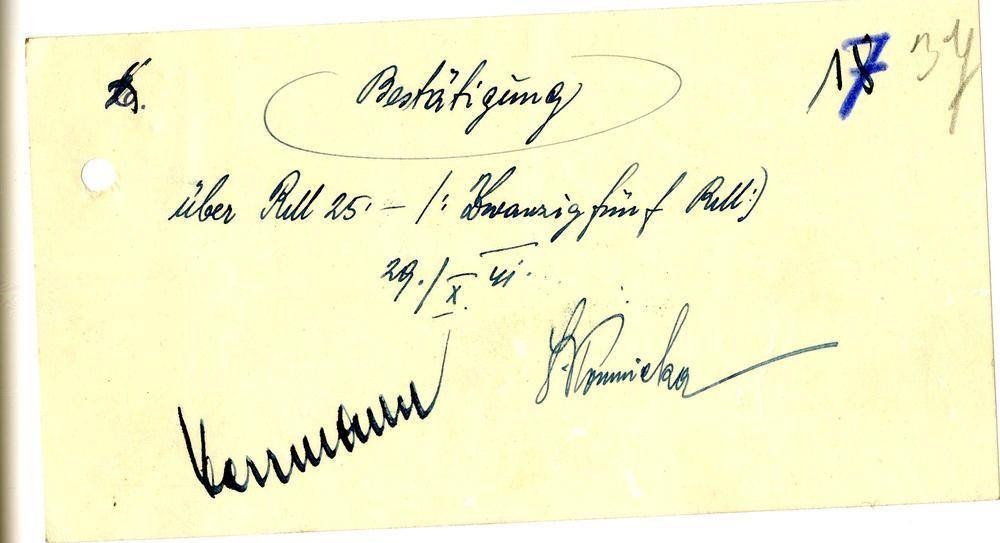 18 7 34
Bestätigung
über RM 25.- /: Zwanzigfünf RM :/
29./X. 41.
Herrmann